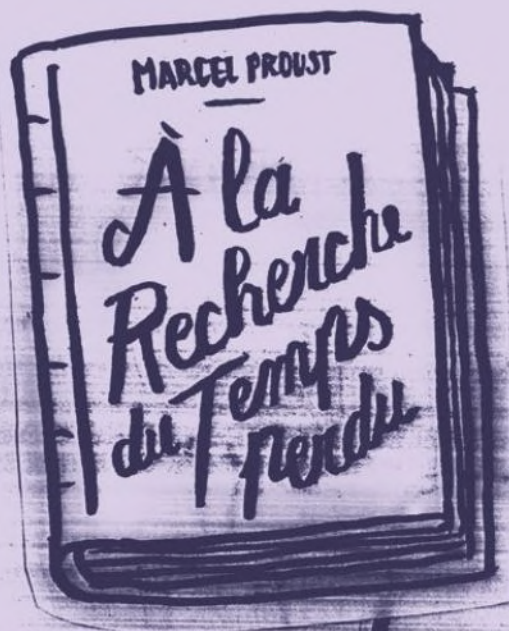 MARCEL PROUST
À la
Recherche
du Temps
perdu